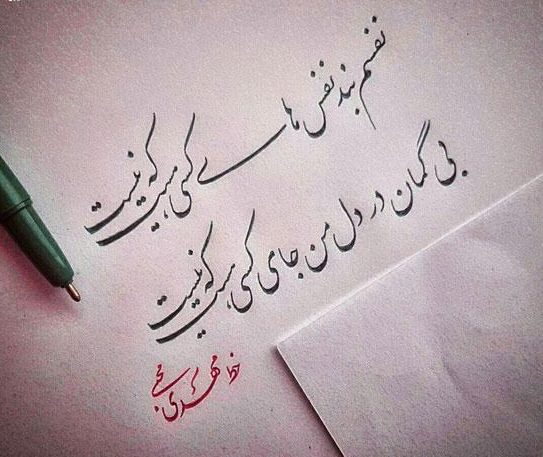 نفسم بند نفس های کسی هست که نیست
بی گمان در دل من جای کسی هست که نیست